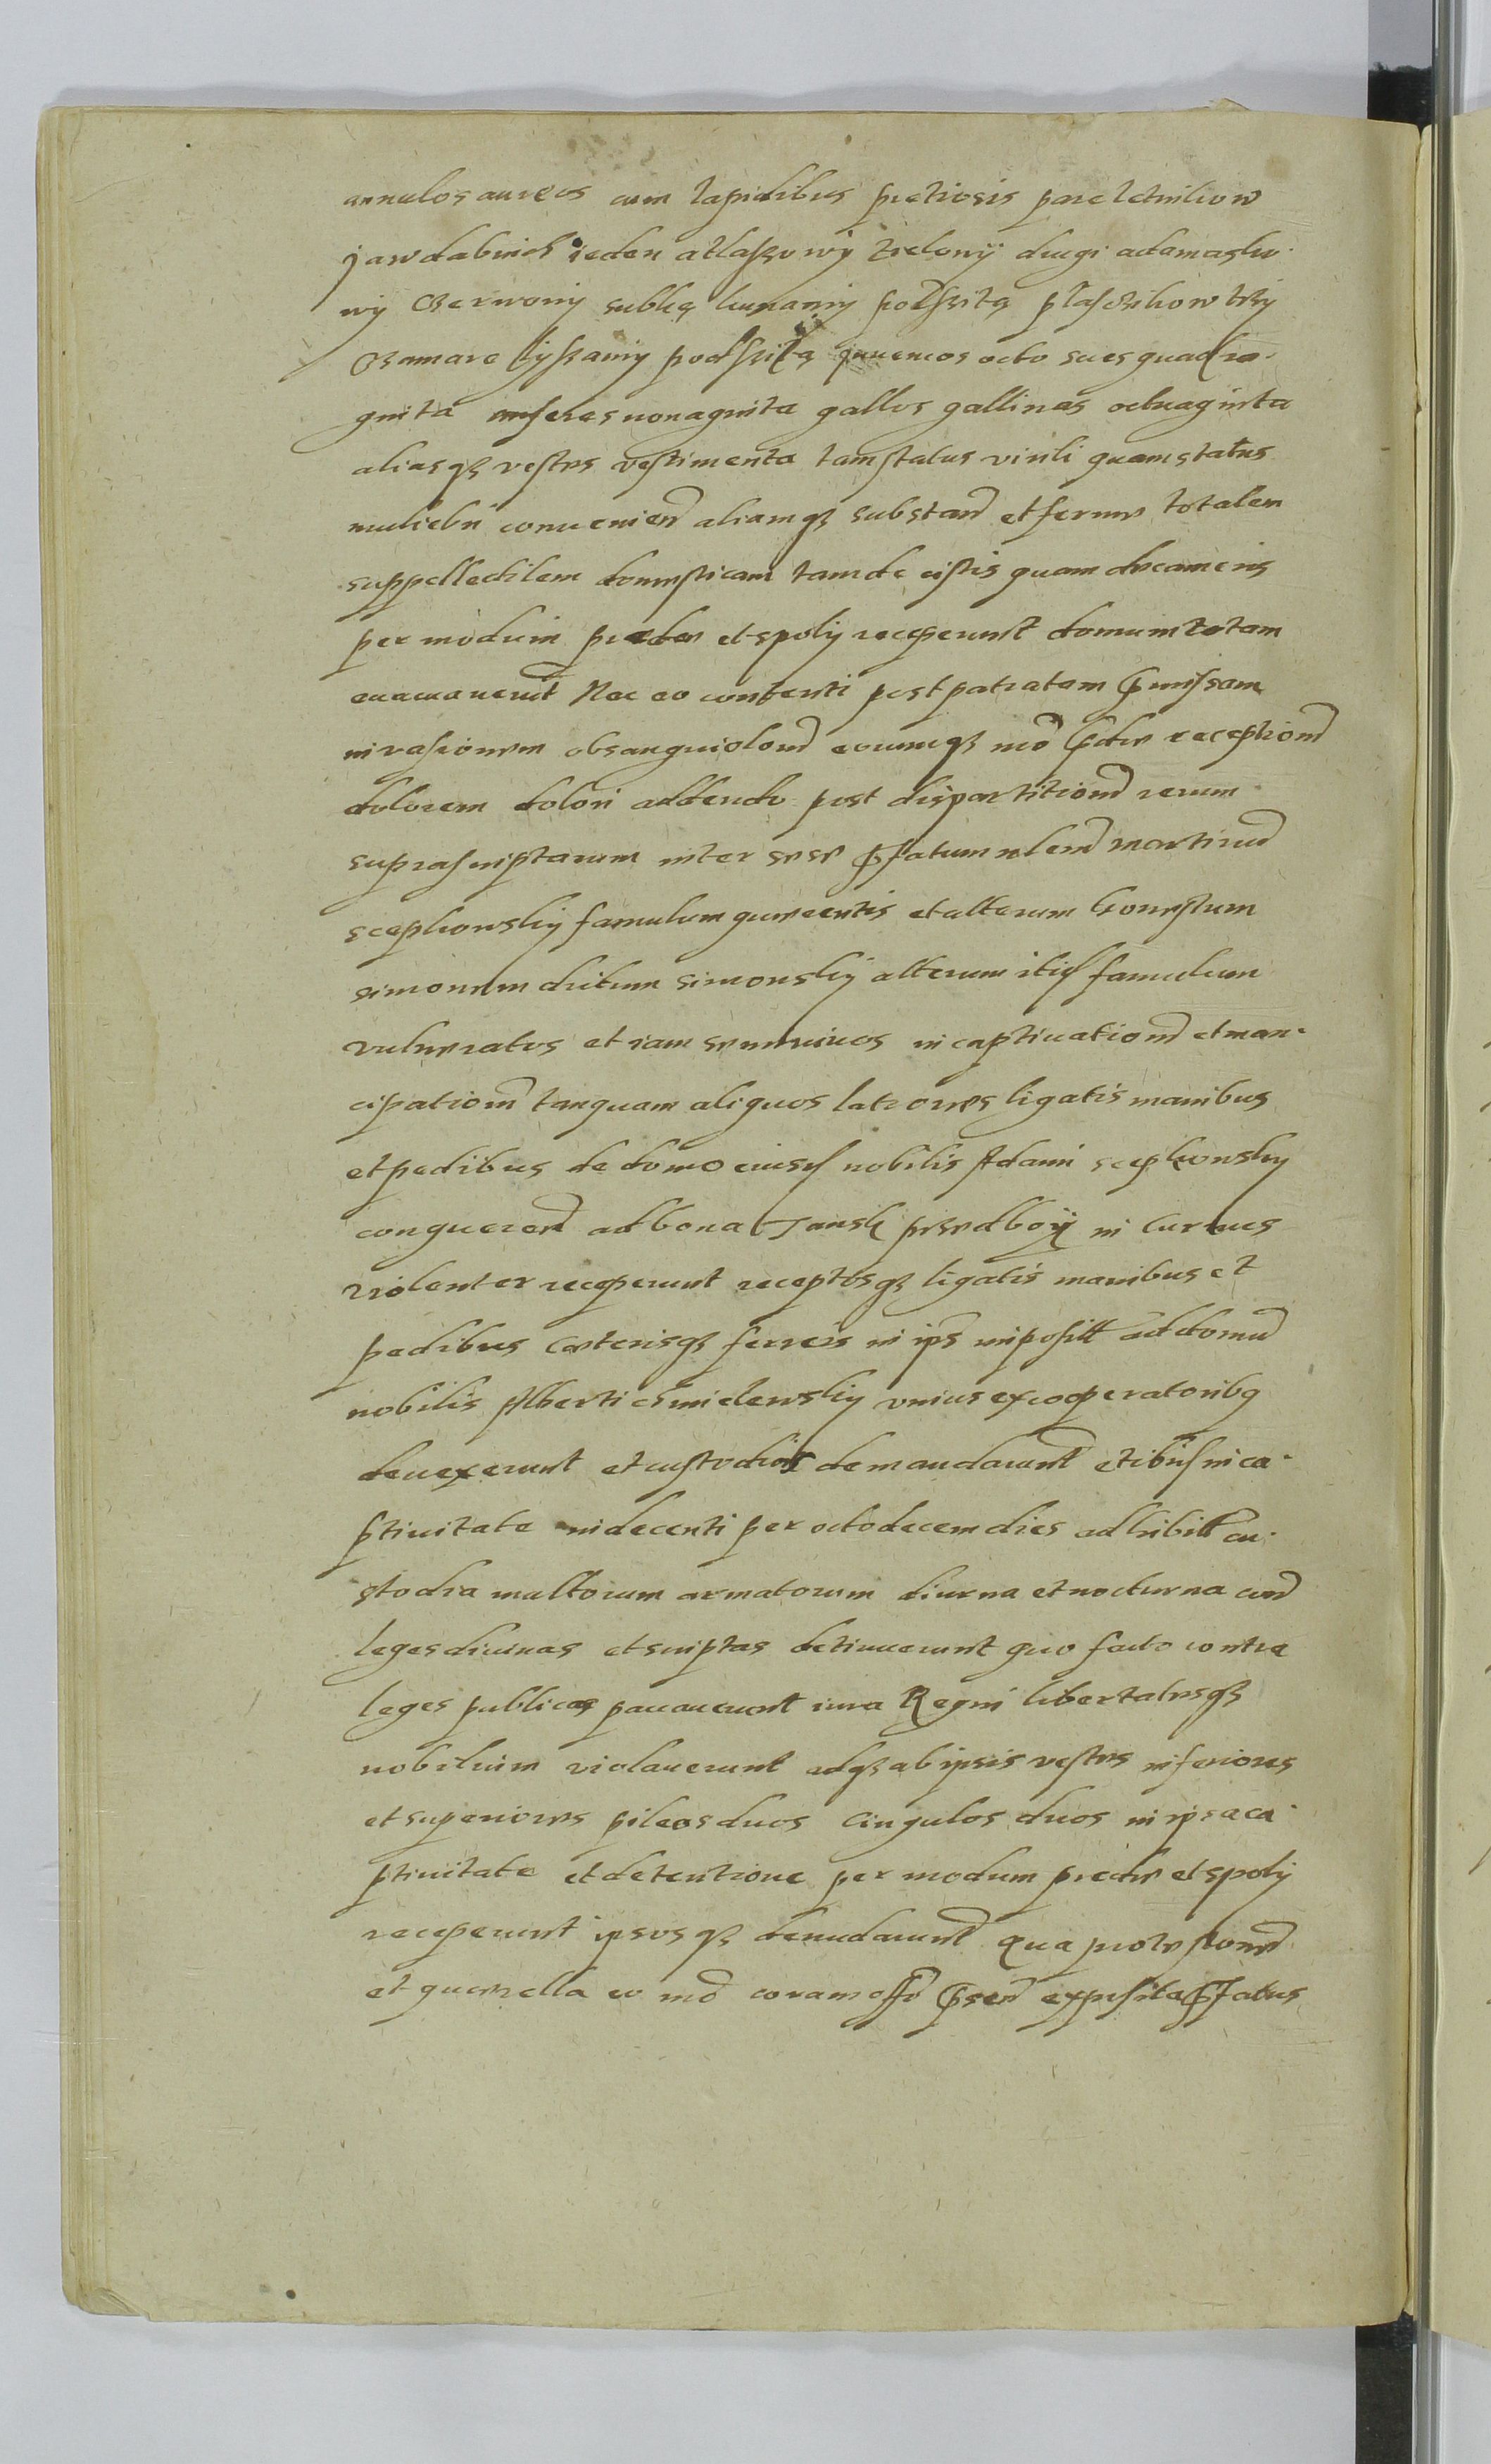 annulos aureos cum lapidibus pretiosis pare letnikow
jawdabnich ieden atlaszowÿ zielonÿ drugi adamasko·
wÿ czerwonÿ subkę kunamÿ podszitą plasczikow trzÿ
czamare lÿszamÿ podszitą juuencos octo sues quadra·
ginta anseres nonaginta gallos gallinas octuaginta
aliasqꝫ vestes vestimenta tam statui virili quam statui
muliebri conuenien̄ aliamqꝫ substan̄ et ferme totalem
suppellectilem domesticam tam de cistis quam de cameris
per modum prædæ et spolÿ receperunt domum totam
euacuauerunt Nec eo contenti post patratam p̄missam
inuasionem obsanguiolon̄ eoumqꝫ mō p̄dæ reception̄
dolorem dolori addendo post dispartition̄ rerum
suprascriptarum inter sese p̄fatum nlem̄ martinū
sceplowskÿ famulum querentis et alterum honestum
simonem dictum simonskÿ alterum itid famulum
vulneratos et iam semiuiuos in captiuation̄ et man·
cipation̄ tanquam aliquos latrones ligatis manibus
et pedibus de domo eiusd nobilis Adami sceplowskÿ
conqueren̄ ad bona Jansk przedboÿ in currus
violenter receperunt receptosqꝫ ligatis manibus et
pedibus cæterisqꝫ ferreis in ip̄s imposit̄ ad domū
nobilis Alberti chmielewskÿ vnius ex cooperatoribꝫ
deuexerunt et custodiæ demandarunt et ibid in ca·
ptiuitate indecenti per octodecem dies adhibit̄ cu·
stodia multorum armatorum diurna et nocturna con̄
leges diuinas et scriptas detinuerunt quo facto contra
leges publicas peccauerunt iura Regni libertatesqꝫ
nobilium violauerunt adqꝫ ab ipsis vestes inferiores
et superiores pileos duos cingulos duos in ipsa ca·
ptiuitate et detentione per modum predæ et spolÿ
receperunt ipsosqꝫ denudarunt qua protestione
et querella eo mō coram offō p̄sen̄ exposita p̄fatus